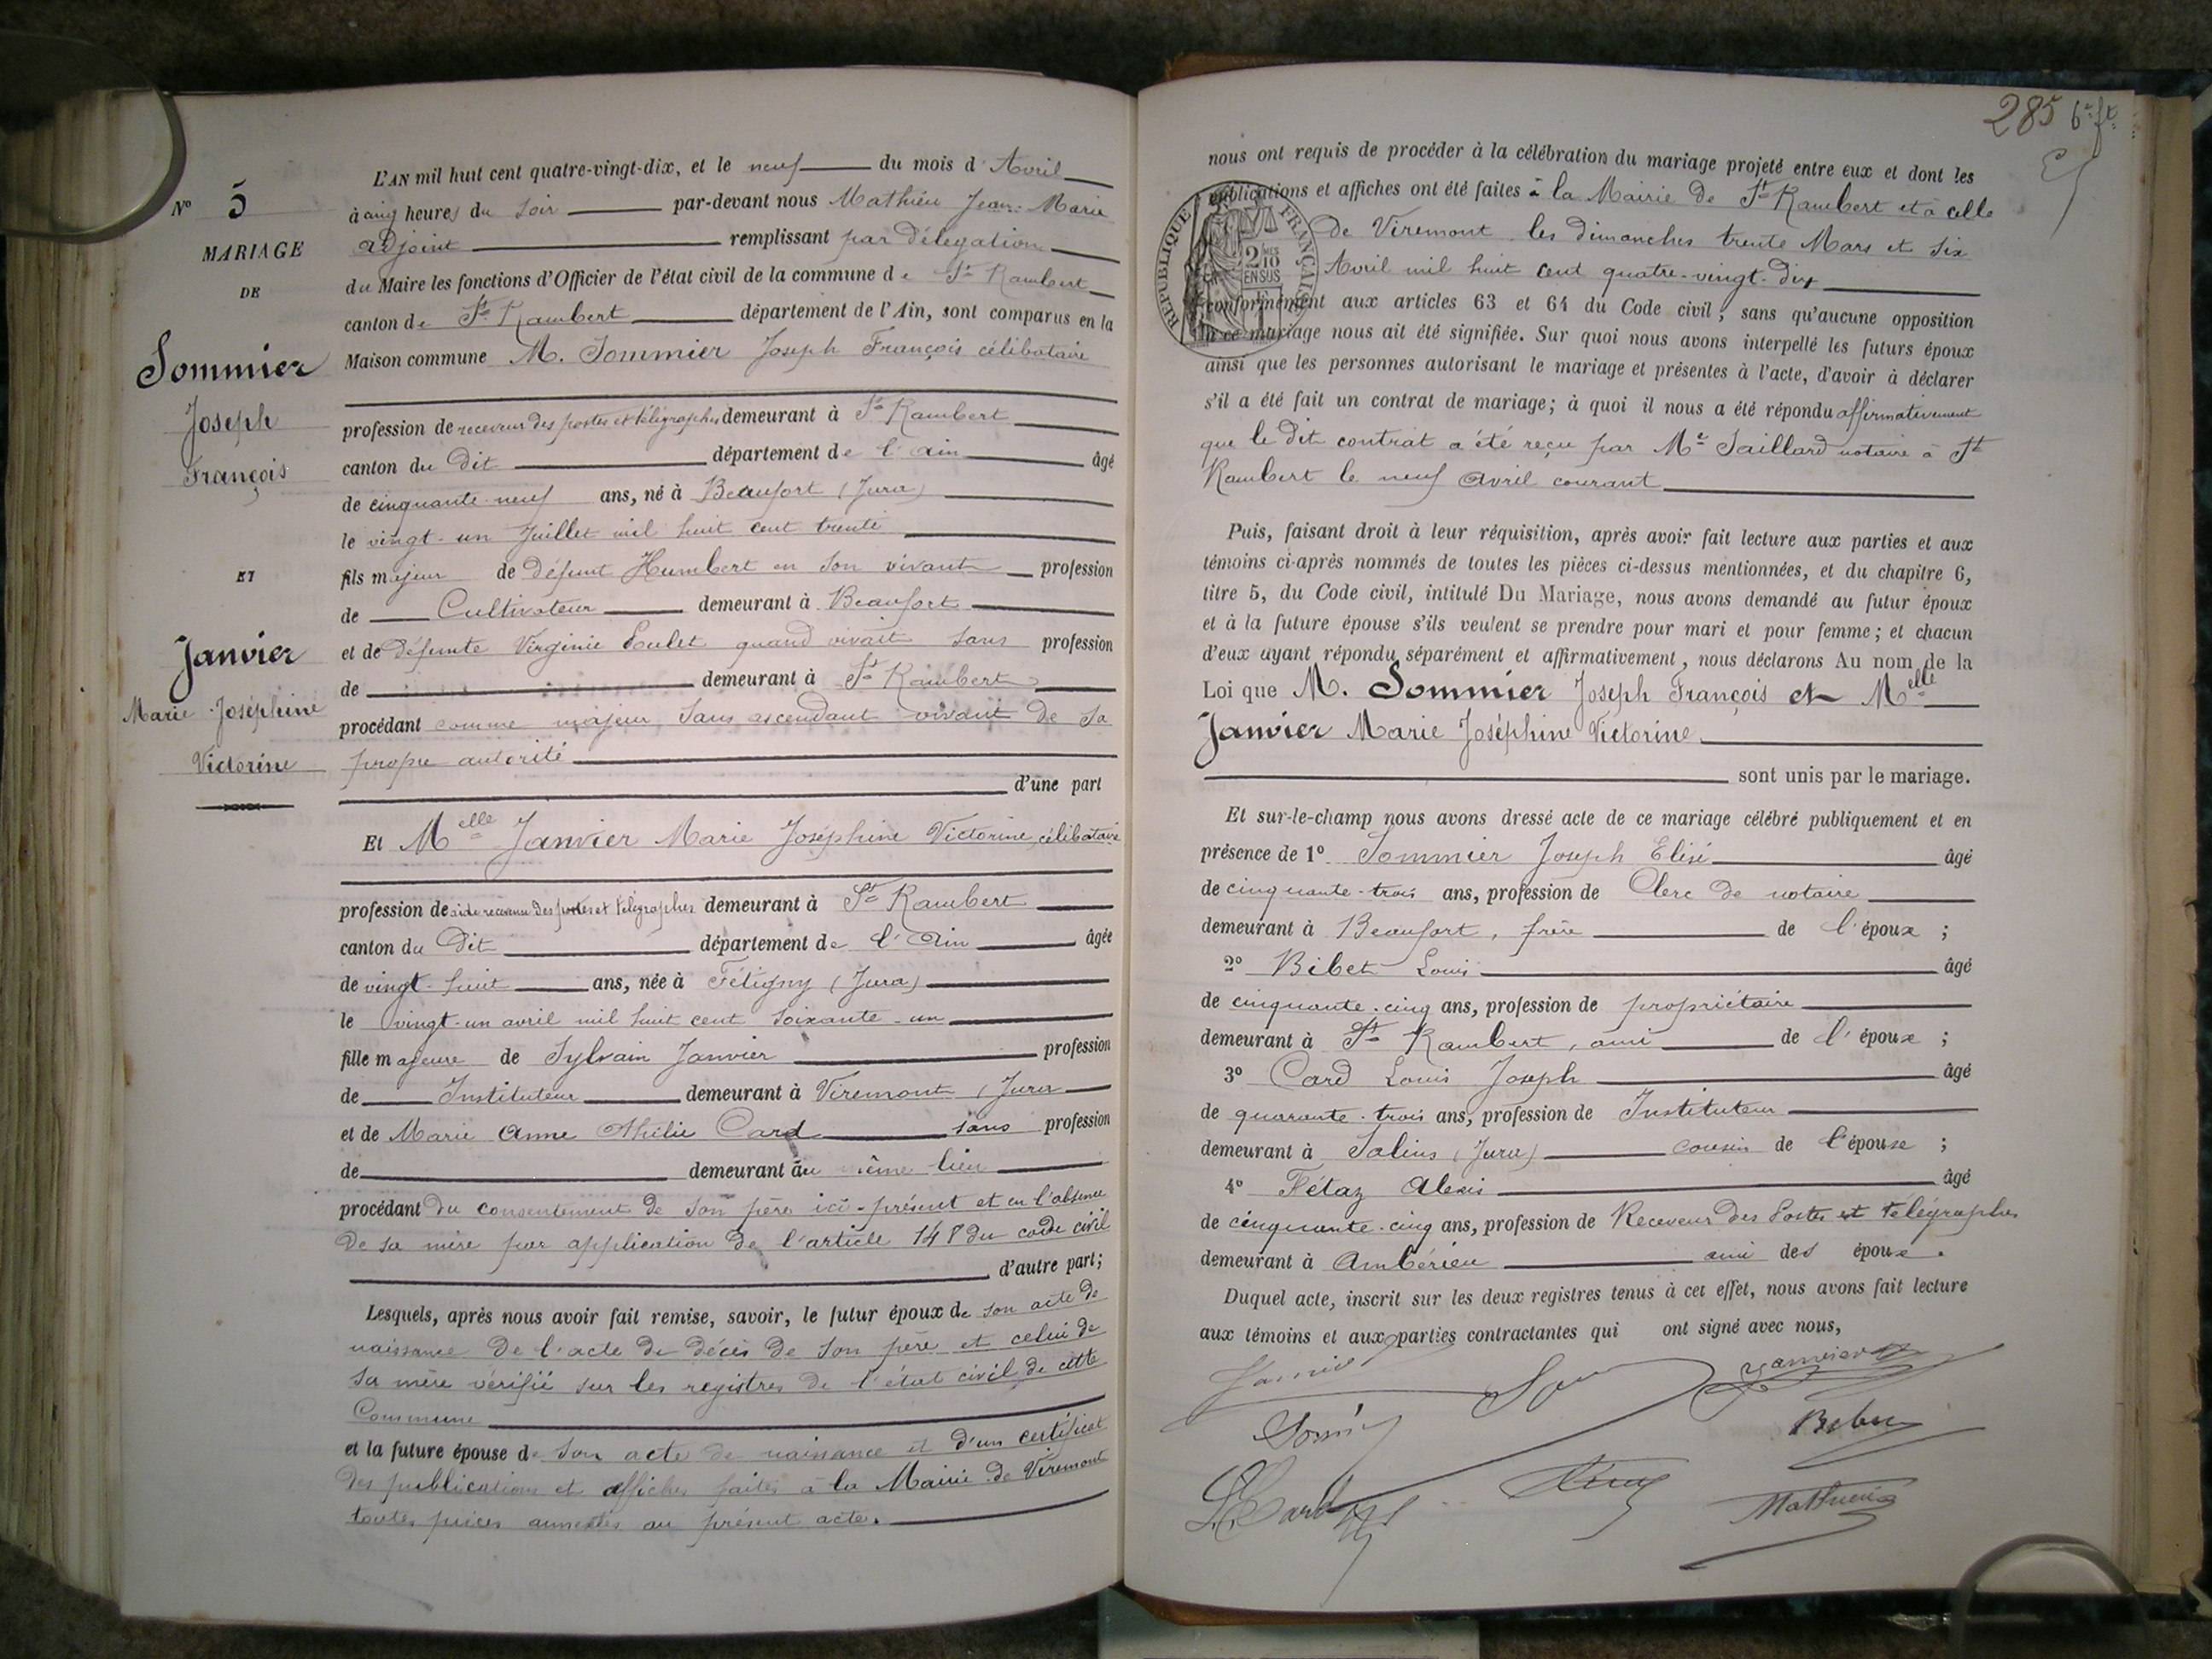 N° 5
MARIAGE
DE
Sommier
Joseph
François
ET
Janvier
Marie Joséphine
Victorine
L'AN mil huit cent quatre-vingt-dix, et le neuf du mois d'Avril
à cinq heures du soir par-devant nous Mathieu Jean-Marie
adjoint remplissant par délégation
du Maire les fonctions d'Officier de l'état civil de la commune de St Rambert
canton de St Rambert département de l'Ain, sont comparus en la
Maison commune M. Sommier Joseph François célibataire
profession de receveur des postes et télégraphes demeurant à St Rambert
canton du dit département de l'Ain âgé
de cinquante-neuf ans, né à Beaufort (Jura)
le vingt-un Juillet mil huit cent trente
fils majeur de défunt Humbert en son vivant profession
de Cultivateur demeurant à Beaufort
et de défunte Virginie quand vivait sans profession
de demeurant à St Rambert
procédant comme majeur sans ascendant vivant de sa
propre autorité
d'une part
Et Melle Janvier Marie Joséphine Victorine, célibataire
profession de aide receveur des postes et télégraphes demeurant à St Rambert
canton du dit département de l'Ain âgée
de vingt-huit ans, née à Fétigny (Jura)
le vingt-un avril mil huit cent soixante-un
fille majeure de Sylvain Janvier profession
de Instituteur demeurant à Viremont (Jura
et de Marie Anne Othilie Card sans profession
de demeurant au même lieu
procédant du consentement de son père ici-présent et en l'absence
de sa mère par application de l'article 148 du code civil
d'autre part;
Lesquels, après nous avoir fait remise, savoir, le futur époux de son acte de
naissance de l'acte de décès de son père et celui de
sa mère vérifié sur les registres de l'état civil de cette
Commune
et la future épouse de son acte de naissance et d'un certificat
des publications et affiches faites à la Mairie de Viremont
toutes pièces annexées au présent acte.
285 6e ft
REPUBLIQUE FRANÇAISE
2/10 EN SUS
nous ont requis de procéder à la célébration du mariage projeté entre eux et dont les
publications et affiches ont été faites à la Mairie de St Rambert et à celle
de Viremont les dimanches trente Mars et six
Avril mil huit cent quatre-vingt-dix
conformément aux articles 63 et 64 du Code civil, sans qu'aucune opposition
à ce mariage nous ait été signifiée. Sur quoi nous avons interpellé les futurs époux
ainsi que les personnes autorisant le mariage et présentes à l'acte, d'avoir à déclarer
s'il a été fait un contrat de mariage; à quoi il nous a été répondu affirmativement
que le dit contrat a été reçu par Me Saillard notaire à St
Rambert le neuf avril courant
Puis, faisant droit à leur réquisition, après avoir fait lecture aux parties et aux
témoins ci-après nommés de toutes les pièces ci-dessus mentionnées, et du chapitre 6,
titre 5, du Code civil, intitulé Du Mariage, nous avons demandé au futur époux
et à la future épouse s'ils veulent se prendre pour mari et pour femme; et chacun
d'eux ayant répondu séparément et affirmativement, nous déclarons Au nom de la
Loi que M. Sommier Joseph François et Melle
Janvier Marie Joséphine Victorine
sont unis par le mariage.
Et sur-le-champ nous avons dressé acte de ce mariage célébré publiquement et en
présence de 1° Sommier Joseph Elisé âgé
de cinquante-trois ans, profession de Clerc de notaire
demeurant à Beaufort, frère de l'époux ;
2° Bibet Louis âgé
de cinquante-cinq ans, profession de propriétaire
demeurant à St Rambert, ami de l'époux ;
3° Card Louis Joseph âgé
de quarante-trois ans, profession de Instituteur
demeurant à Salins (Jura) cousin de l'épouse ;
4° Fétaz Alexis âgé
de cinquante-cinq ans, profession de Receveur des Postes et télégraphes
demeurant à Ambérieu ami des époux.
Duquel acte, inscrit sur les deux registres tenus à cet effet, nous avons fait lecture
aux témoins et aux parties contractantes qui ont signé avec nous,
Janvier
Mathieu